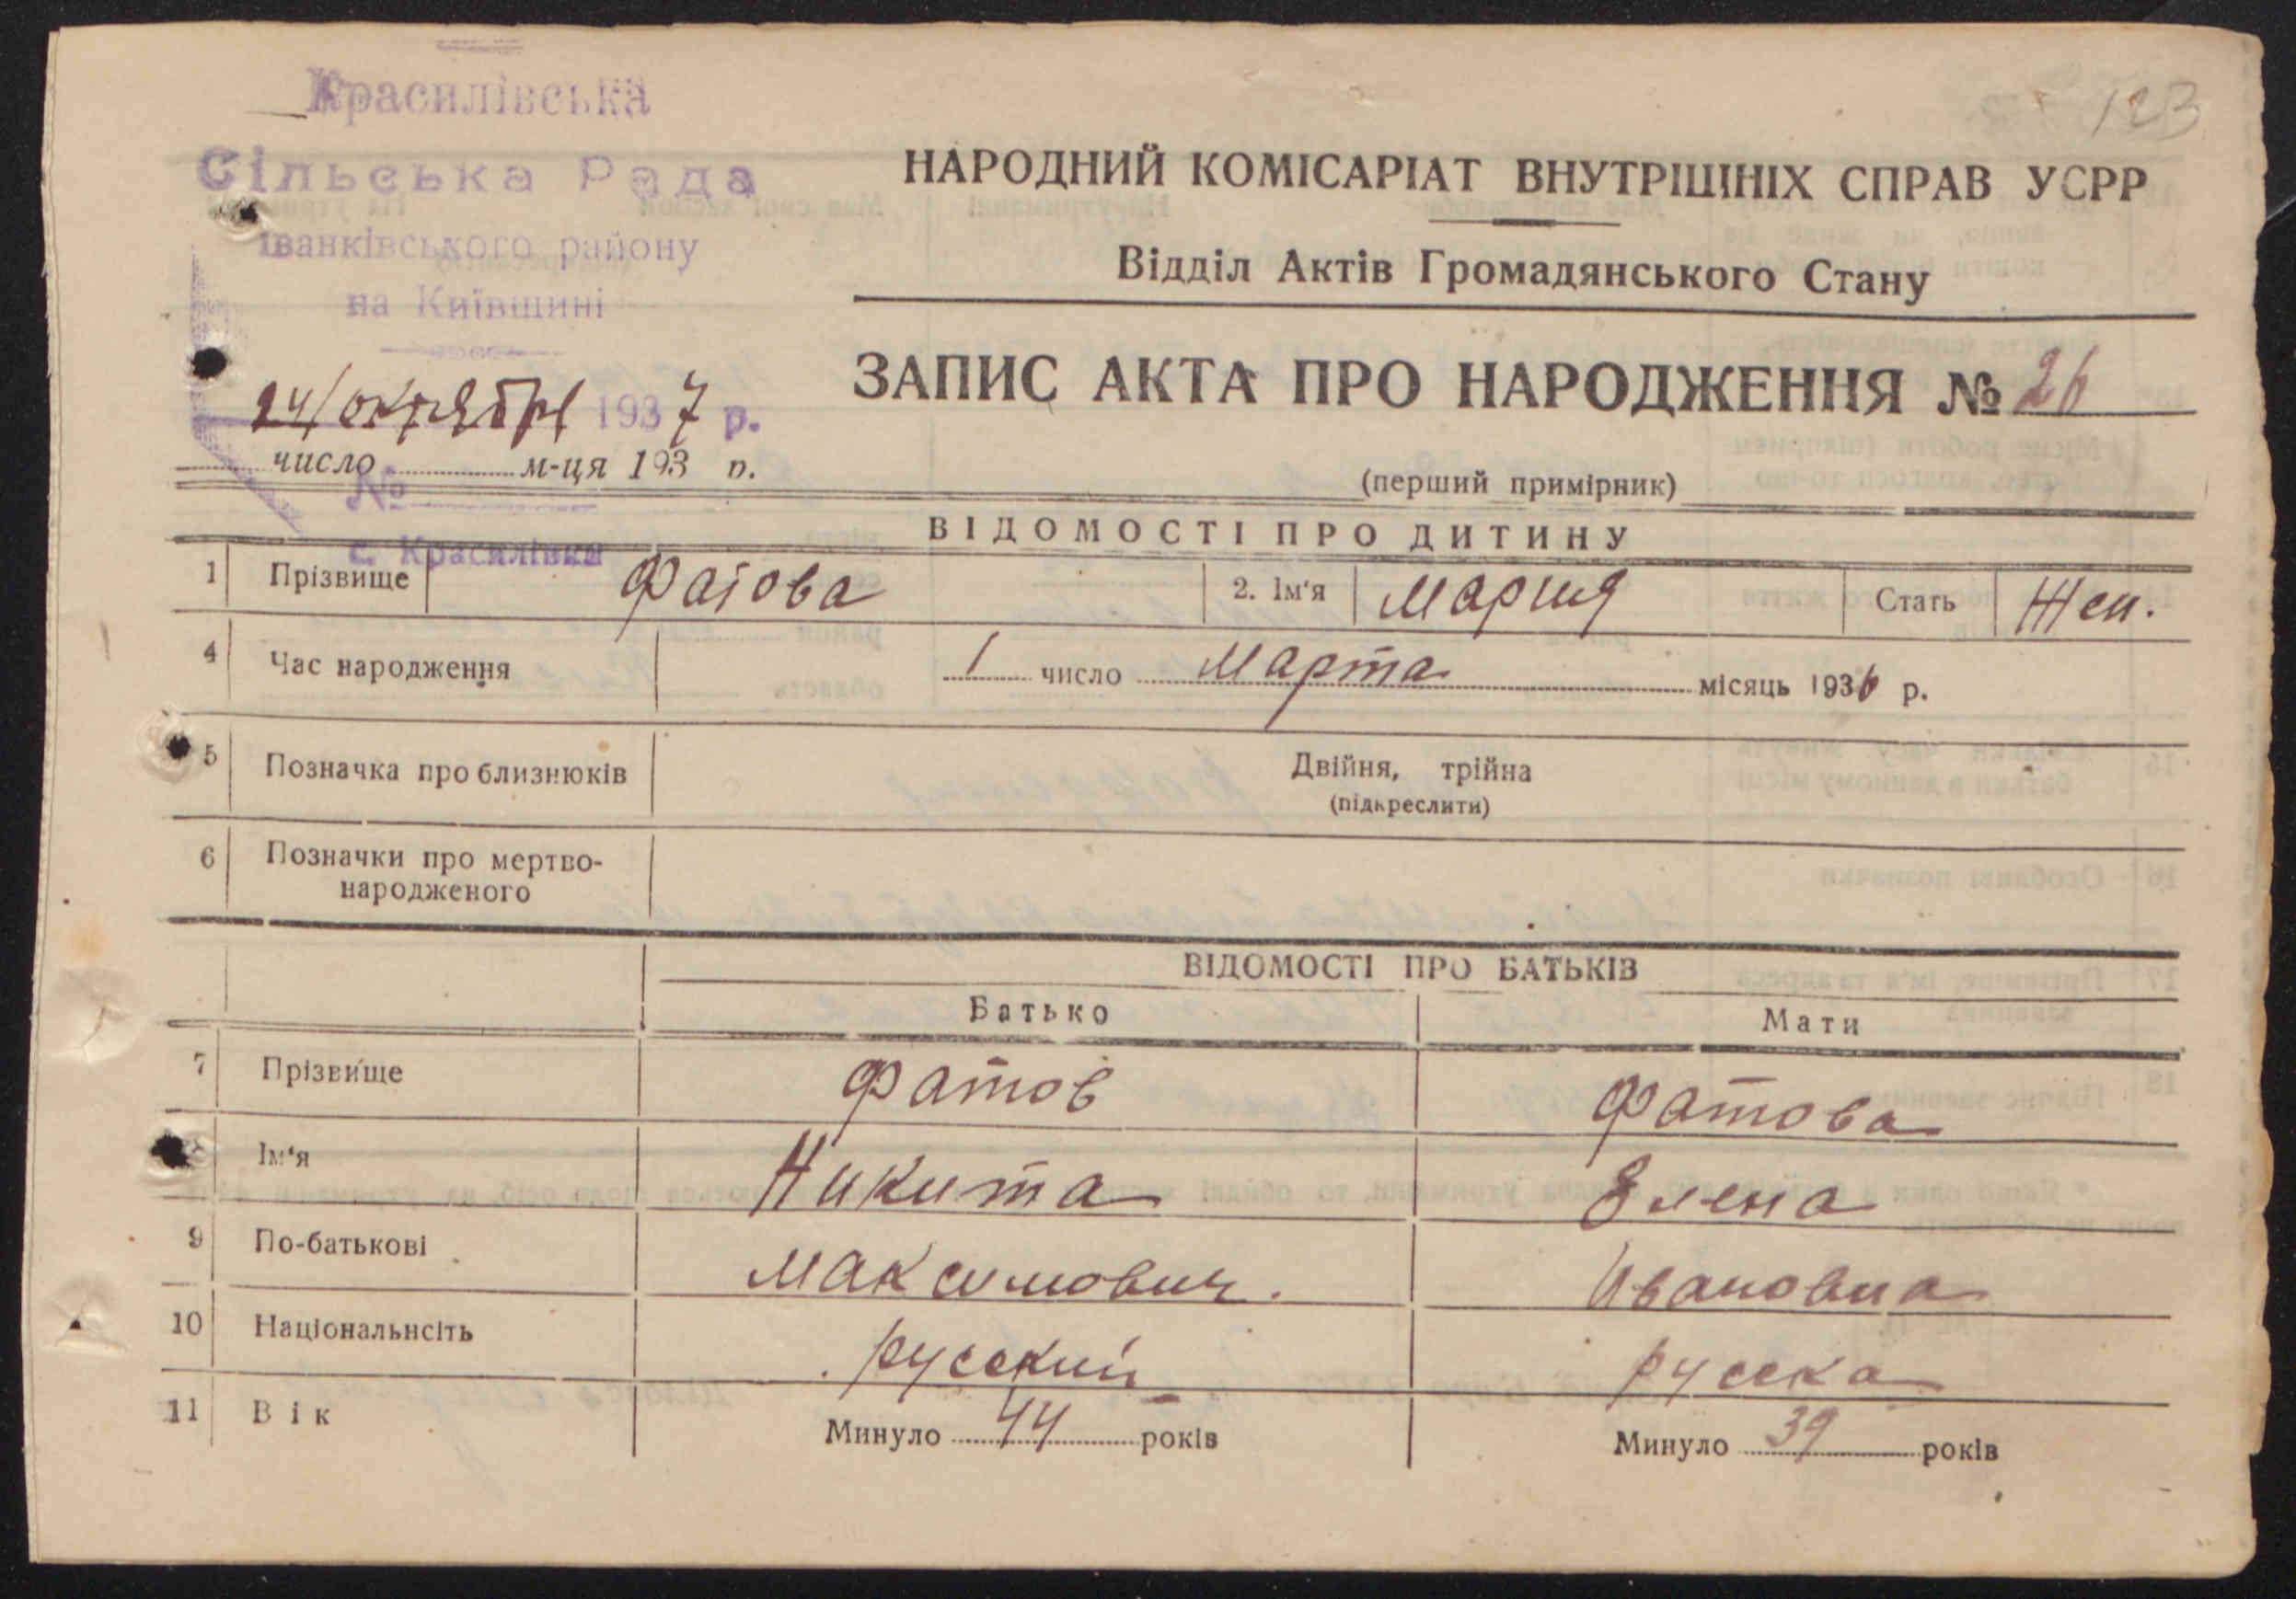 123
Красилівська
Сільська Рада
Іванківського району
на Київщині
24/октября 1937 р.
число м-ця 193 р.
№
с. Красилівка
НАРОДНИЙ КОМІСАРІАТ ВНУТРІШНІХ СПРАВ УСРР
Відділ Актів Громадянського Стану
ЗАПИС АКТА ПРО НАРОДЖЕННЯ № 26
(перший примірник)
ВІДОМОСТІ ПРО ДИТИНУ
1 Прізвище Фатова 2. Ім'я Мария Стать Жен.
4 Час народження 1 число Марта місяць 1936 р.
5 Позначка про близнюків Двійня, трійна
(підкреслити)
6 Позначки про мертво-
народженого
ВІДОМОСТІ ПРО БАТЬКІВ
Батько Мати
7 Прізвище Фатов Фатова
8 Ім'я Никита Елена
9 По-батькові Максимович. Ивановна
10 Національнсіть русский русска
11 Вік Минуло 44 років Минуло 39 років